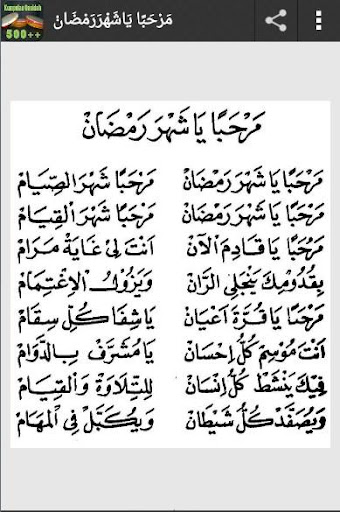 Kumpulan Qosidah
500++
مَرْحَبًا يَاشَهْرَرَمْضَانْ
مَرْحَبًا يَا شَهْرَ رَمْضَانْ
مَرْحَبًا يَا شَهْرَ رَمْضَانْ مَرْحَبًا شَهْرَ الصِّيَامْ
مَرْحَبًا يَا شَهْرَ رَمْضَانْ مَرْحَبًا شَهْرَ الْقِيَامْ
مَرْحَبًا يَا قَادِمَ الْآنْ اَنْتَ لِيْ غَايَةُ مَرَامْ
بِقُدُوْمِكَ يَنْجَلِي الرَّانْ وَيَزُوْلُ الْاِغْتِمَامْ
مَرْحَبًا يَا قُرَّةَ اَعْيَانْ يَا شِفَا كُلِّ سِقَامْ
اَنْتَ مُوْسِمْ كُلِّ اِحْسَانْ يَا مُشَرَّفْ بِالدَّوَامْ
فِيْكَ يَنْشَطْ كُلُّ اِنْسَانْ لِلتِّلَاوَةْ وَالْقِيَامْ
وَيُصَفَّدْ كُلُّ شَيْطَانْ وَيُكَبَّلْ فِي الْمَهَامْ